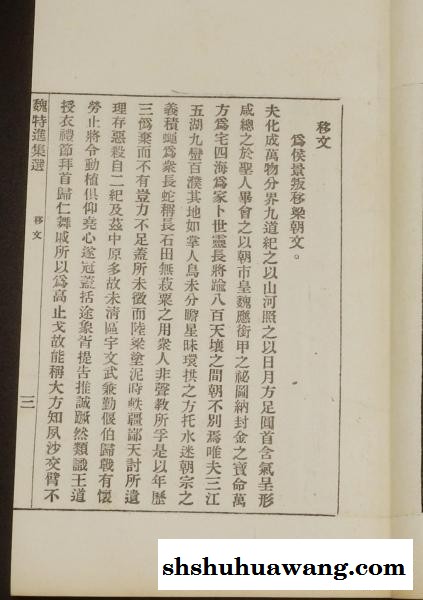 移文
為侯景叛移梁朝文。
夫化成萬物分界九道紀之以山河照之以日月方足圓首含氣呈形
咸總之於聖人畢會之以朝市皇魏應銜甲之祕圖納封金之寶命萬
方為宅四海為家卜世靈長將踰八百天壤之間朝不別焉唯夫三江
五湖九蠻百濮其地如掌人鳥未分瞻星昧環拱之方托水迷朝宗之
義積蠅為衆長蛇稱長石田無菽粟之用衆人非聲教所孚是以年歷
三僞棄而不有豈力不足蓋所未徵而陸梁塗泥時軼疆鄙天討所遺
理存惡殺自二紀及茲中原多故未清區宇文武兼勤偃伯歸戟有懷
勞止將令動植俱仰堯心遂冠蓋括途象胥提告推誠蹶然類識王道
授衣禮節拜首歸仁舞戚所以為高止戈故能稱大方知夙沙交臂不
魏特進集選
移文
三
shshuhuawang.com